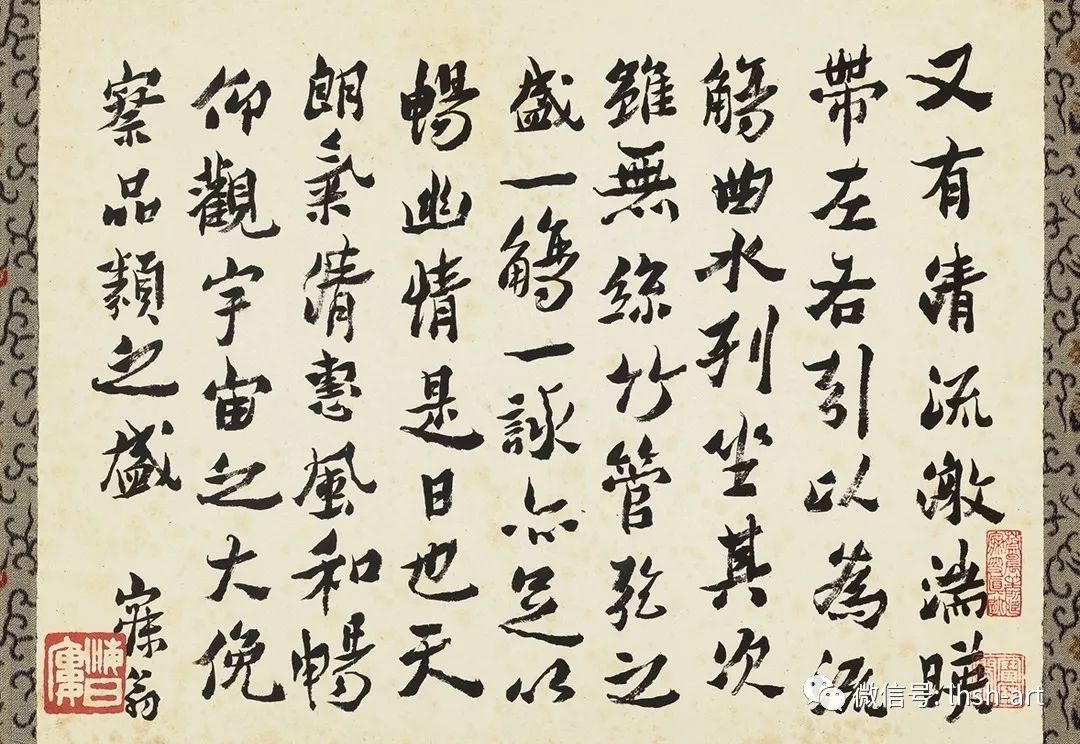 又有清流激湍暎
帶左右引以為流
觴曲水列坐其次
雖無絲竹管弦之
盛一觴一詠亦足以
暢幽情是日也天
朗氣清惠風和暢
仰觀宇宙之大俛
察品類之盛
寐翁
海日廔
微信号: lhsh-art